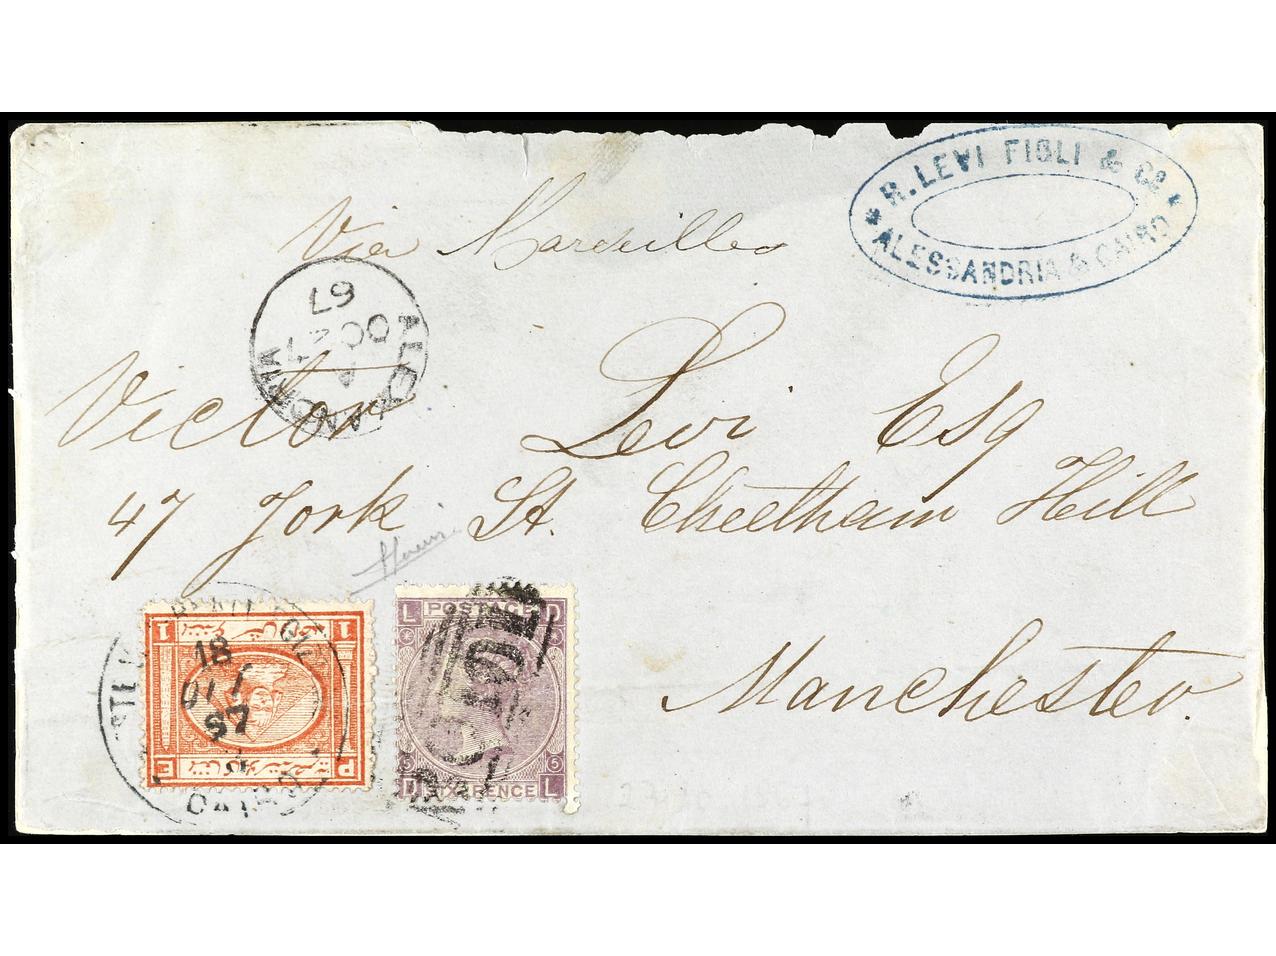 * R. LEVI FIGLI & Co. *
ALESSANDRIA & CAIRO
Via Marseilles
ALEXANDRIA
A
OC 27
67
Victor Levi Esq
47 York St. Cheetham Hill
Manchester.
18
67
CAIRO
1 1
P E
L POSTAGE D
5 5
D SIXPENCE L
B01